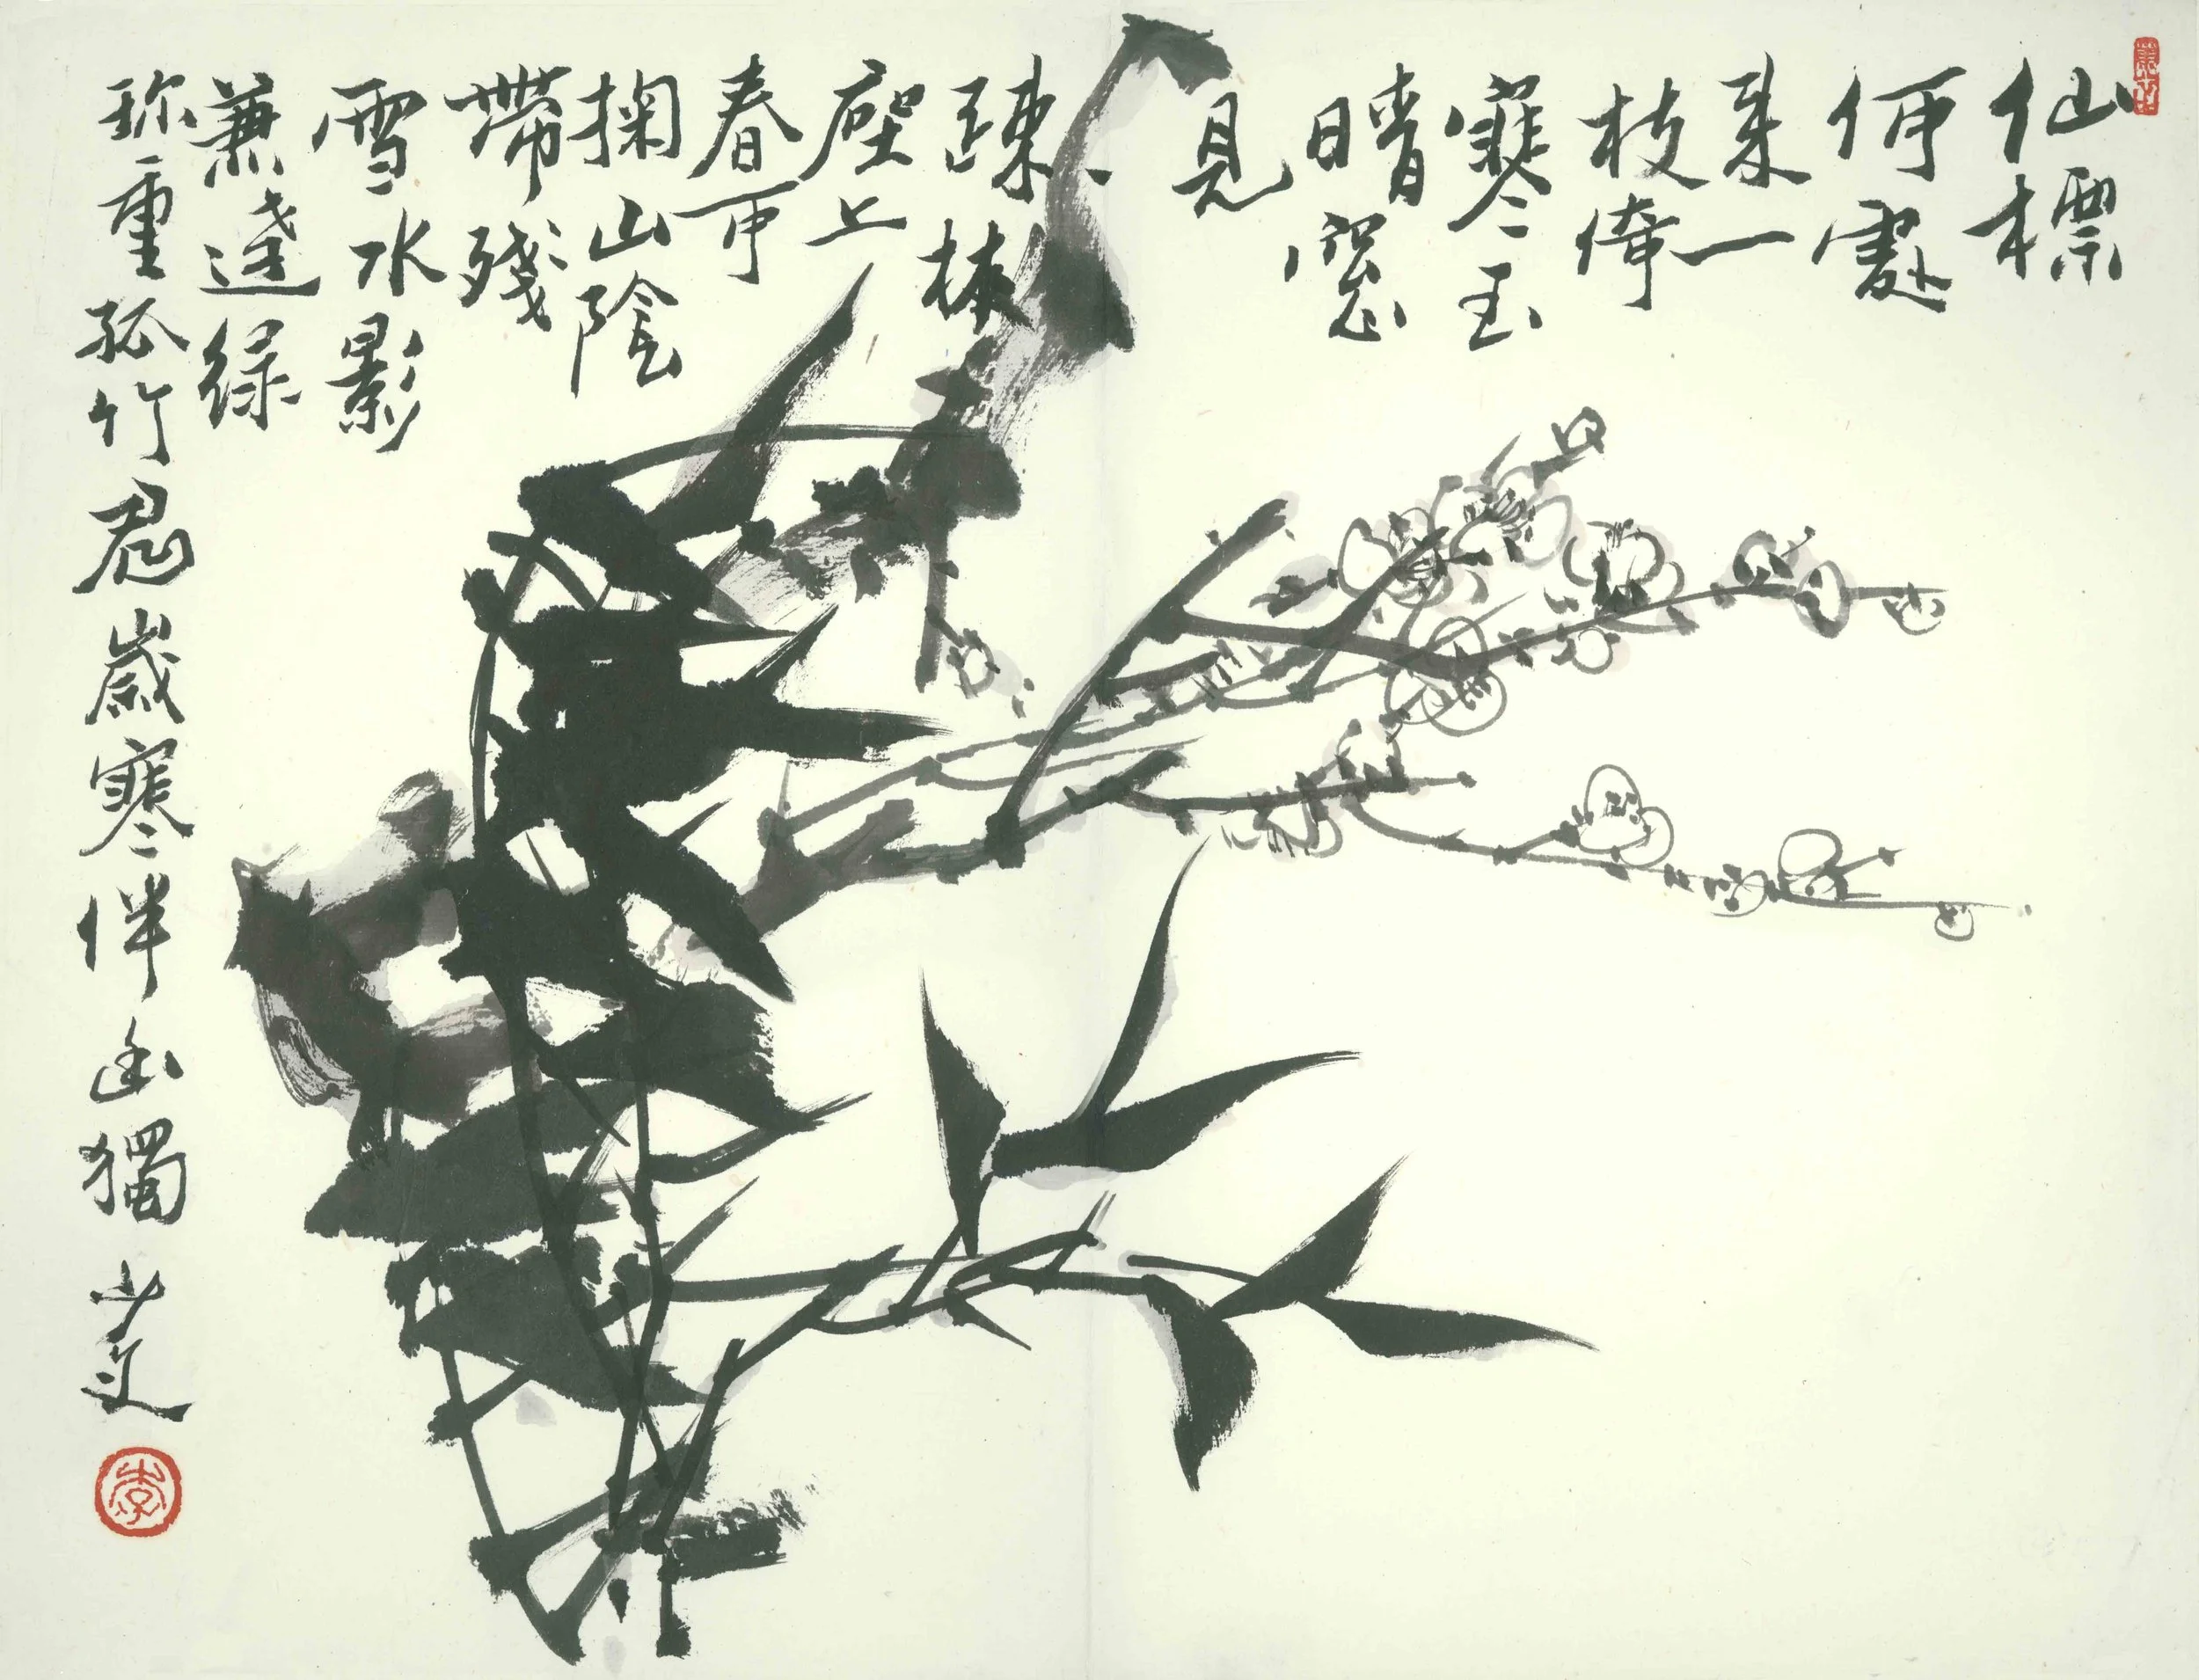 仙標
何處
來一
枝倚
寒玉
晴窓
見
疎林
壁上
春可
掬山陰
帶殘
雪水影
兼遠綠
珍重孤竹君歲寒伴幽獨